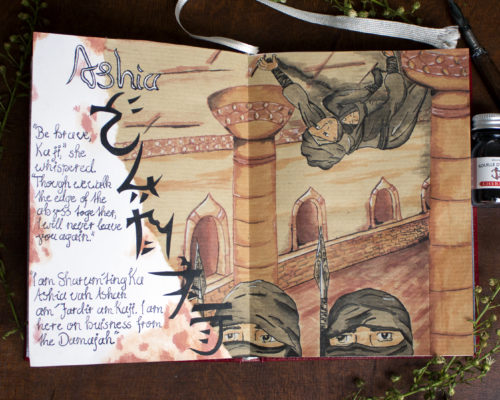 Ashia
"Be brave,
Kaji," she
whispered.
"Though we walk
the edge of the
abyss together,
I will never leave
you again."
"I am Sharum'ting Ka
Ashia vah Ashan
am' Jardir am'Kaji. I am
here on buisness from
the Damajah"
ROUILLE D